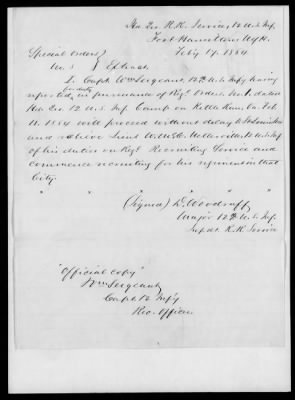 Hd. Qrs. R.R. Service, 12 U.S. Inf.
Fort Hamilton N.Y.H.
Feb'y 17. 1864
Special Orders
No. 5 } Extract
I. Capt. Wm Sergeant 12th U.S. Inf'y having
reported for duty in pursuance of Reg'l Orders No. 1. dated
Hd. Qrs. 12 U.S. Inf Camp on Kettle Run Va Feb
11. 1864 will proceed without delay to
and relieve Lieut 12 U.S. Inf
of his duties on Reg'l Recruiting Service and
commence recruiting for his regiment in that
City.
" " " " "
(Signed) D. Woodruff
Major 12th U.S. Inf.
Supdt. R.R. Service
"Official Copy"
Wm Sergeant
Capt 12 Inf'y
Rec. Officer